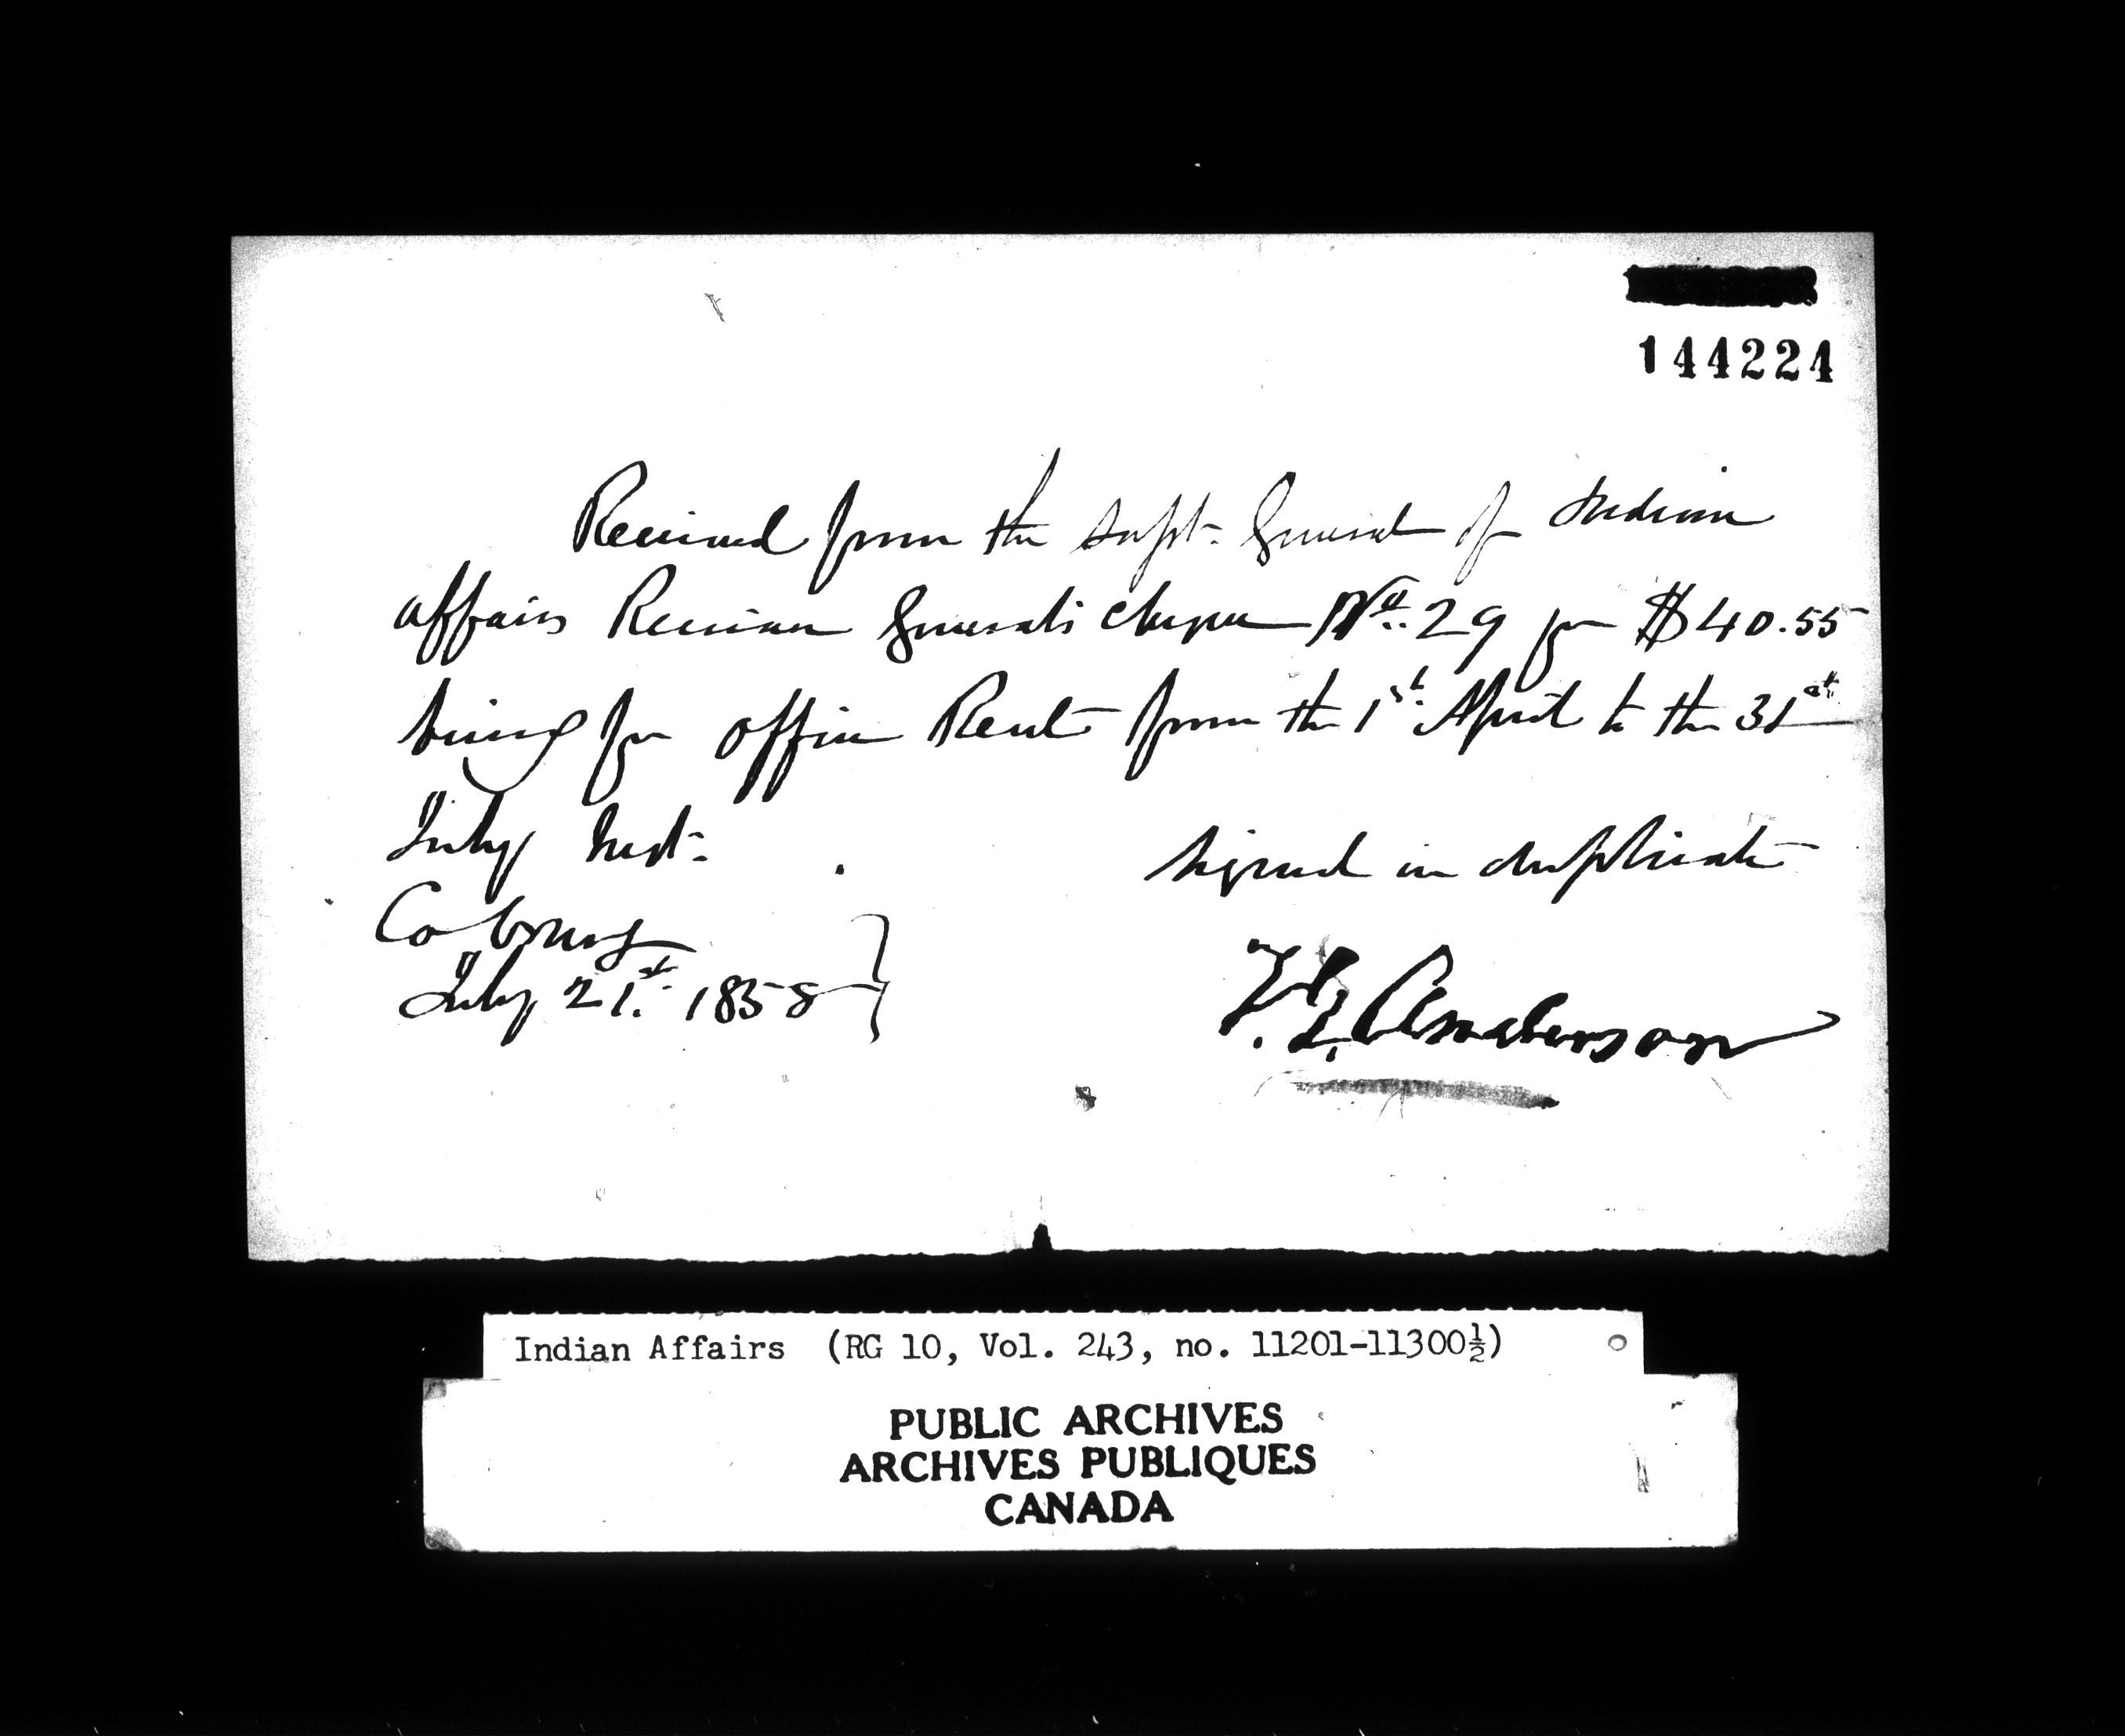 144224
Received from the Supt. General of Indian
affairs Receiver Generals cheque No. 29 for $40.55
being for office Rent from the 1st April to the 31st
July Inst.
signed in duplicate
Cobourg
July 21st 1858
T. G. Anderson
Indian Affairs (RG 10, Vol. 243, no. 11201-11300½)
PUBLIC ARCHIVES
ARCHIVES PUBLIQUES
CANADA